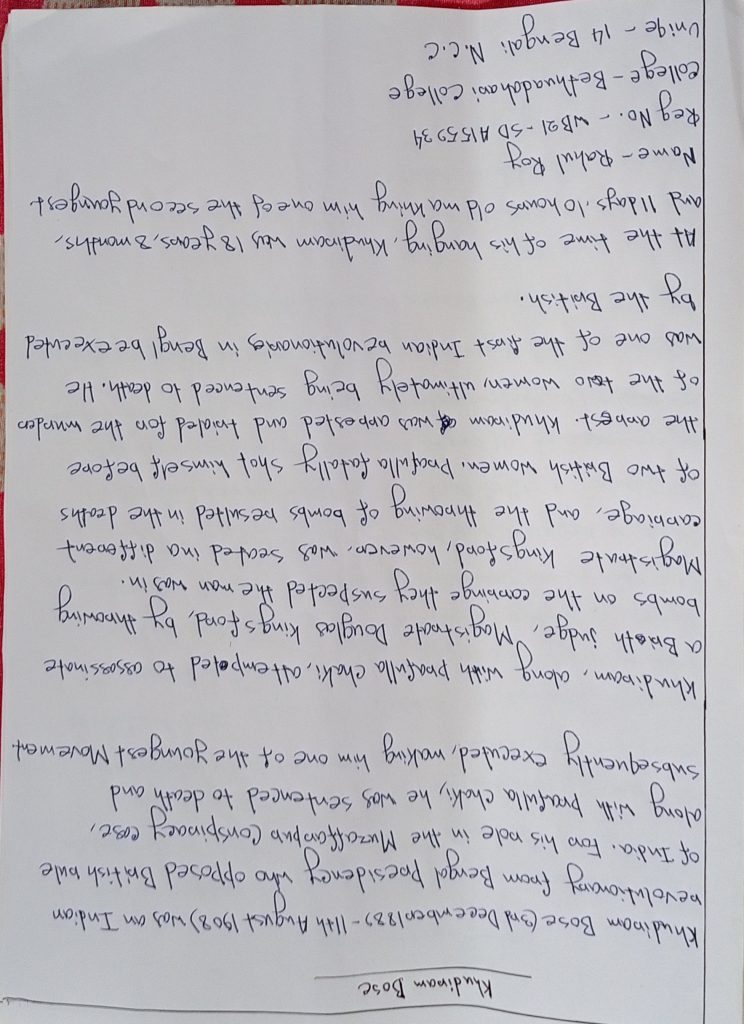 Khudiram Bose
Khudiram Bose (3rd December 1889 - 11th August 1908) was an Indian
revolutionary from Bengal Presidency who opposed British rule
of India. For his role in the Muzaffarpur Conspiracy case,
along with Prafulla Chaki, he was sentenced to death and
subsequently executed, making him one of the youngest Movement
Khudiram, along with Prafulla Chaki, attempted to assassinate
a British judge, Magistrate Douglas Kingsford, by throwing
bombs on the carriage they suspected the man was in.
Magistrate Kingsford, however, was seated in a different
carriage, and the throwing of bombs resulted in the deaths
of two British women. Prafulla fatally shot himself before
the arrest. Khudiram was arrested and trialed for the murder
of the two women, ultimately being sentenced to death. He
was one of the first Indian revolutionaries in Bengl be executed
by the British.
At the time of his hanging, Khudiram was 18 years, 8 months,
and 11 days, 10 hours old making him one of the second youngest
Name - Rahul Roy
Reg No. - WB21-SDA155934
College - Bethuadahari College
Uniqe - 14 Bengali N.C.C